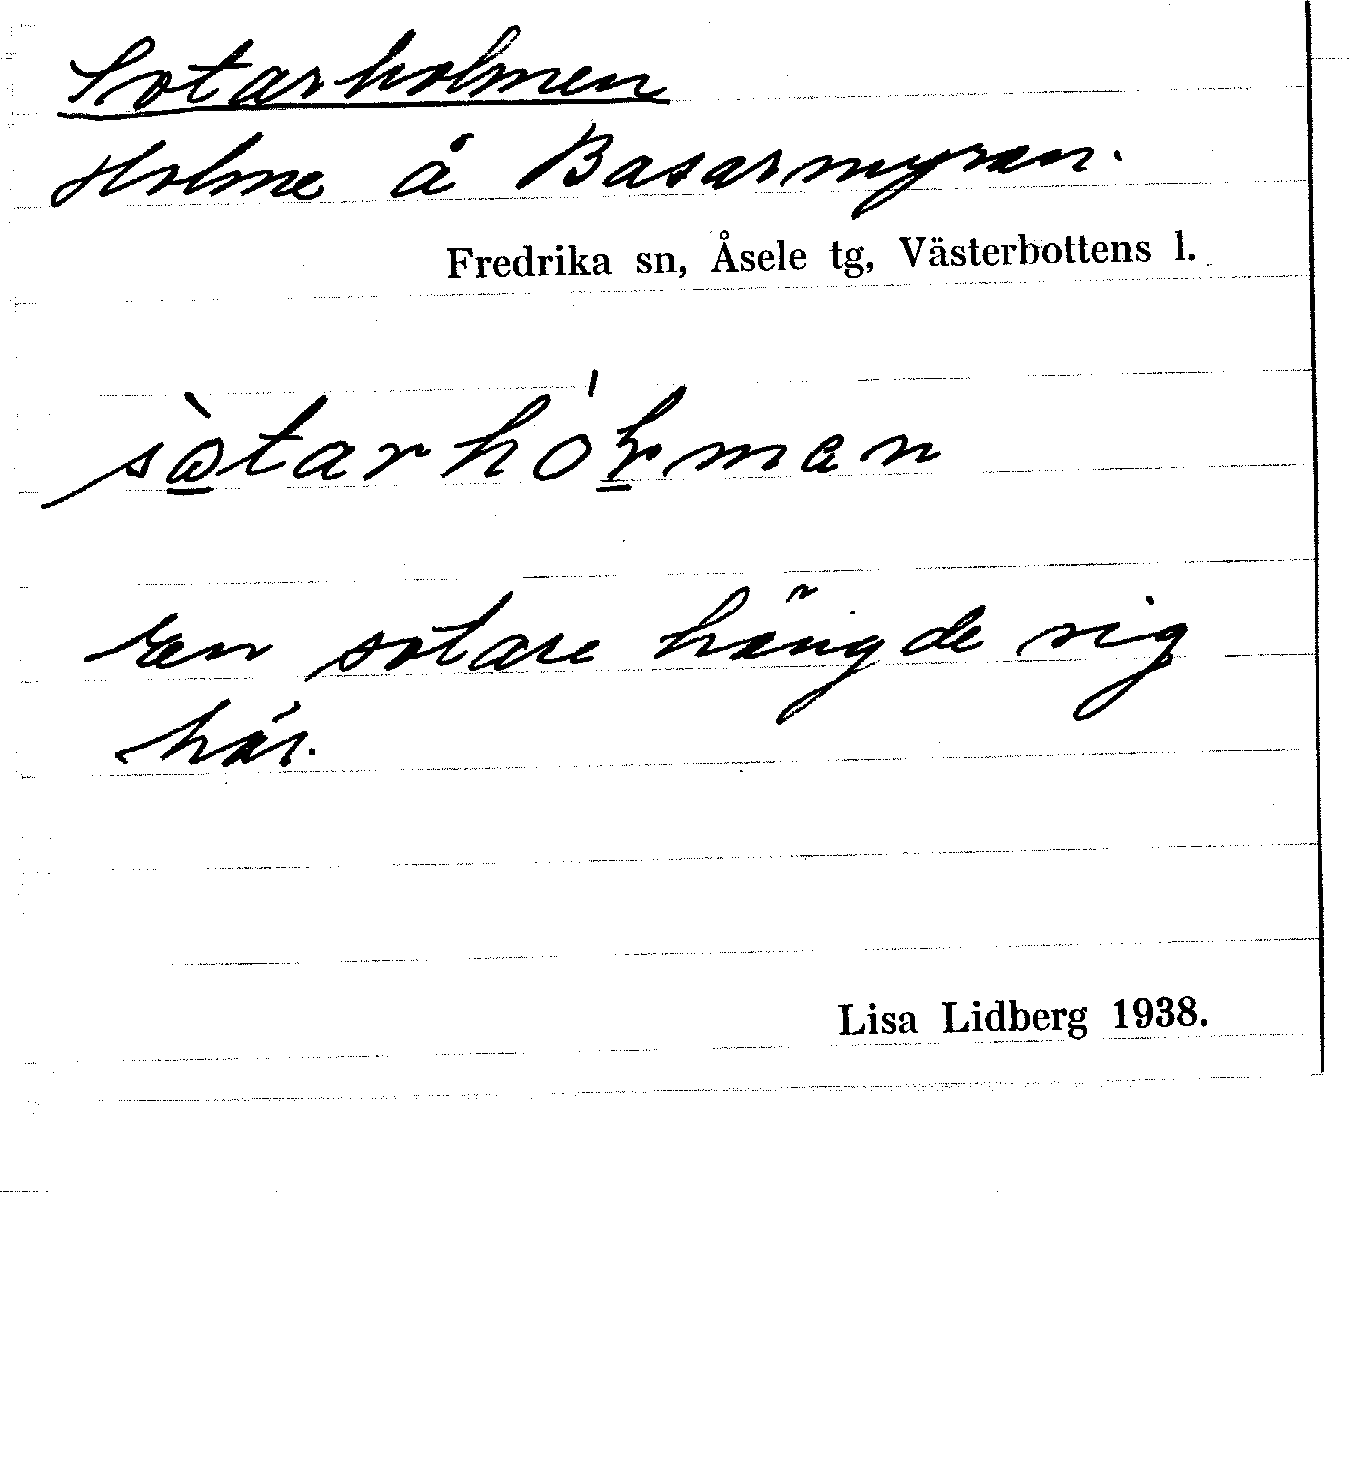 Sotarholmen
Holme å Basarmyran.
Fredrika sn, Åsele tg, Västerbottens l.
En sotare hängde sig
här.
Lisa Lidberg 1938.